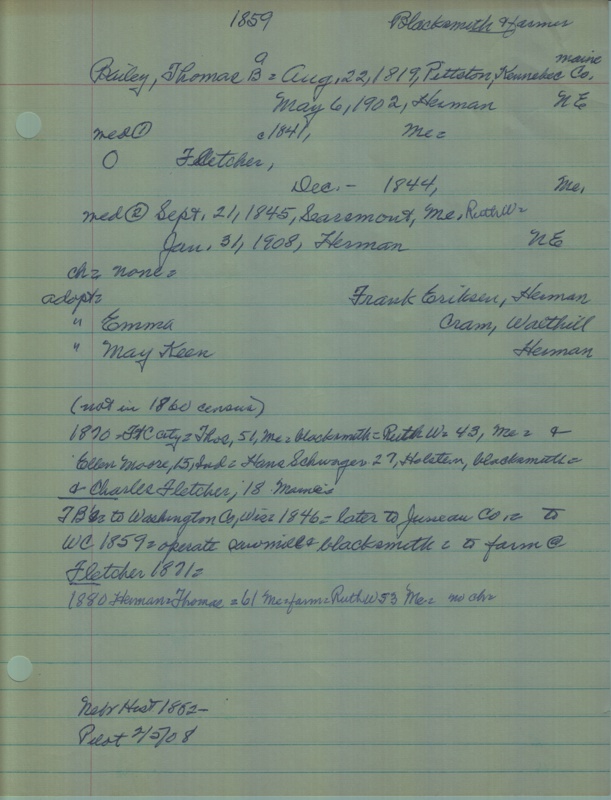 1859 Blacksmith & farmer
Bailey, Thomas B = Aug, 22, 1819, Pittston, Kennebec Co, Maine
May 6, 1902, Herman NE
med ① c1841, Me =
O Fletcher,
Dec. - 1844, Me.
med ② Sept. 21, 1845, Searsmont, Me, Ruth W =
Jan. 31, 1908, Herman NE
ch = none =
adopt = Frank Eriksen, Herman
" Emma Cram, Walthill
" May Keen Herman
(not in 1860 census)
1870 = FtC city = Thos, 51, Me = blacksmith = Ruth W = 43, Me = &
Ellen Moore, 15, Ind = Hans Schwager 27, Holstein, blacksmith =
& Charles Fletcher, 18
TB = to Washington Co, Wis = 1846 = later to Juneau Co, = to
WC 1859 = operate sawmill & blacksmith = to farm @
Fletcher 1871 =
1880 Herman = Thomas = 61 Me = farm = Ruth W 53 Me = no ch =
Nebr Hist 1882 -
Pilot 2/5/08